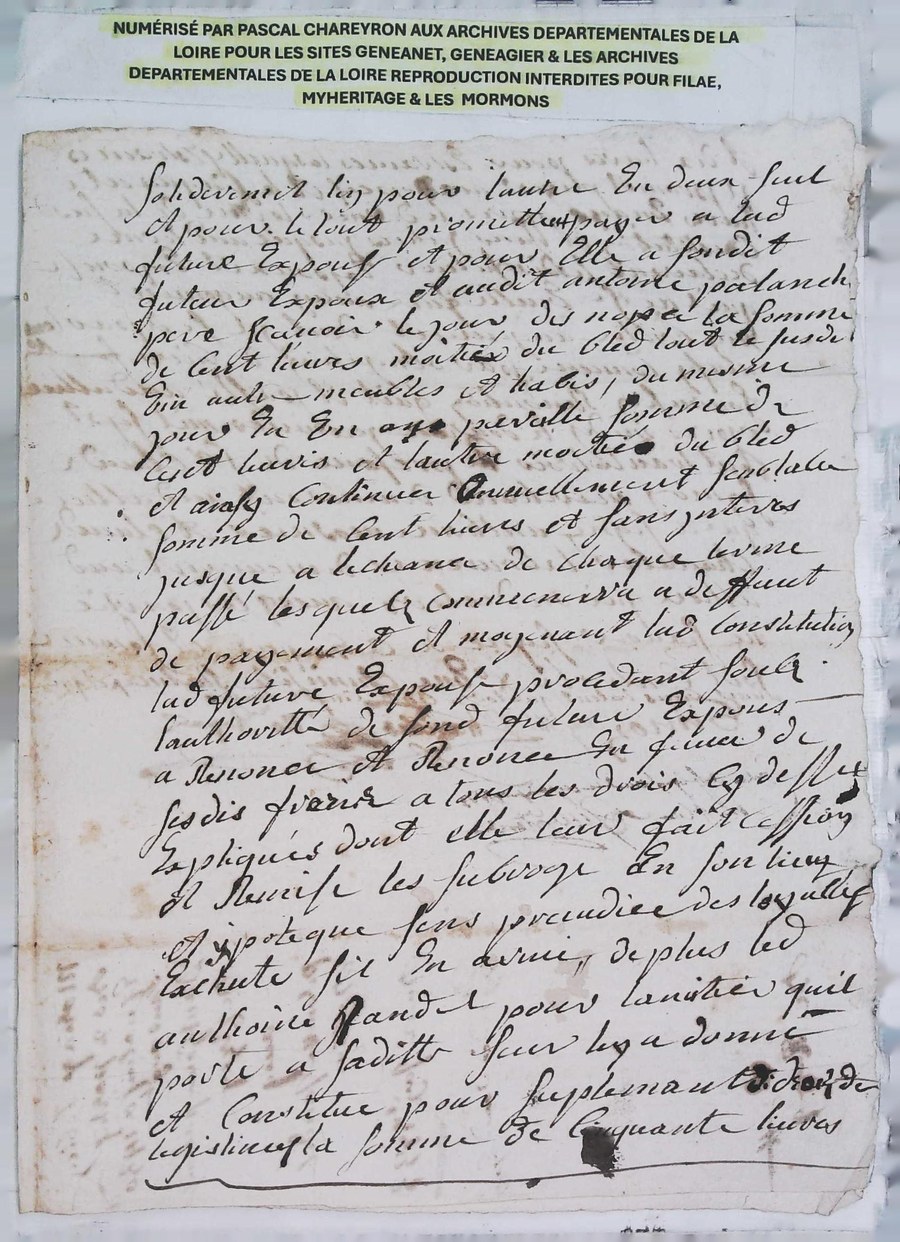 NUMÉRISÉ PAR PASCAL CHAREYRON AUX ARCHIVES DEPARTEMENTALES DE LA
LOIRE POUR LES SITES GENEANET, GENEAGIER & LES ARCHIVES
DEPARTEMENTALES DE LA LOIRE REPRODUCTION INTERDITES POUR FILAE,
MYHERITAGE & LES MORMONS
pour lautre En deux seul
Et pour le tout promettent payer a lad
future Expouse Et pour Elle a sondit
futur Expoux Et audit antoine palanch
pere scauoir le jour des nopce la somme
de Cent liures moitiés du bled tout le susd
autre meubles Et habis, du mesme
jour En En pareille somme de
Cent liures Et lautre moitiés du bled
Et ainsy Continuer Annuellement semblable
somme de Cent liures Et sans jnteres
jusque a lecheance de chaque terme
passé lesquels commencerra a deffaut
de payement Et moyenant lad Constitution
lad future Expouse procedant soubz
lauthoritté de sond futur Expous
a Renoncé Et Renonce En faueur de
sesdis freres a tous les drois Cy dessus
Expliqués dont elle leur fait Cession
Et Remise les subroge En son lieu
Et ypoteque sans preiudice des loyalles
Exchute sil En arriue, de plus led
anthoine pour lamitier quil
porte a saditte seur luy a donné
Et Constitue pour suplemant de
la somme de Cinquante liures